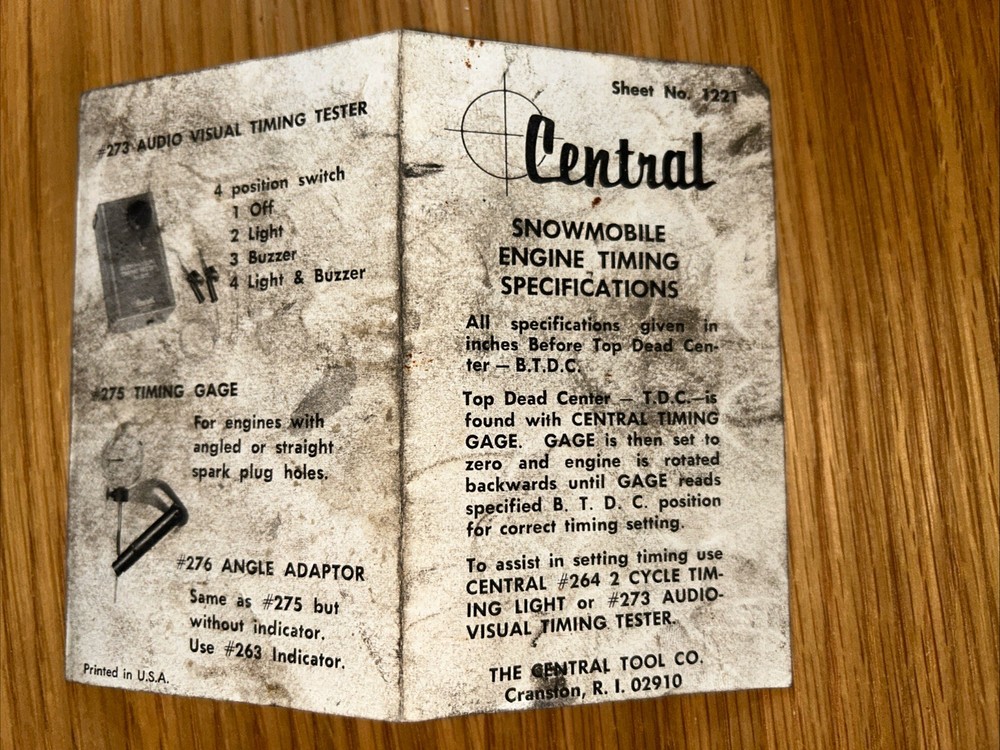 #273 AUDIO VISUAL TIMING TESTER
4 position switch
1 Off
2 Light
3 Buzzer
4 Light & Buzzer
#275 TIMING GAGE
For engines with
angled or straight
spark plug holes.
#276 ANGLE ADAPTOR
Same as #275 but
without indicator.
Use #263 Indicator.
Printed in U.S.A.
Sheet No. 1221
Central
SNOWMOBILE
ENGINE TIMING
SPECIFICATIONS
All specifications given in
inches Before Top Dead Cen-
ter — B.T.D.C.
Top Dead Center — T.D.C.—is
found with CENTRAL TIMING
GAGE. GAGE is then set to
zero and engine is rotated
backwards until GAGE reads
specified B. T. D. C. position
for correct timing setting.
To assist in setting timing use
CENTRAL #264 2 CYCLE TIM-
ING LIGHT or #273 AUDIO-
VISUAL TIMING TESTER.
THE CENTRAL TOOL CO.
Cranston, R. I. 02910